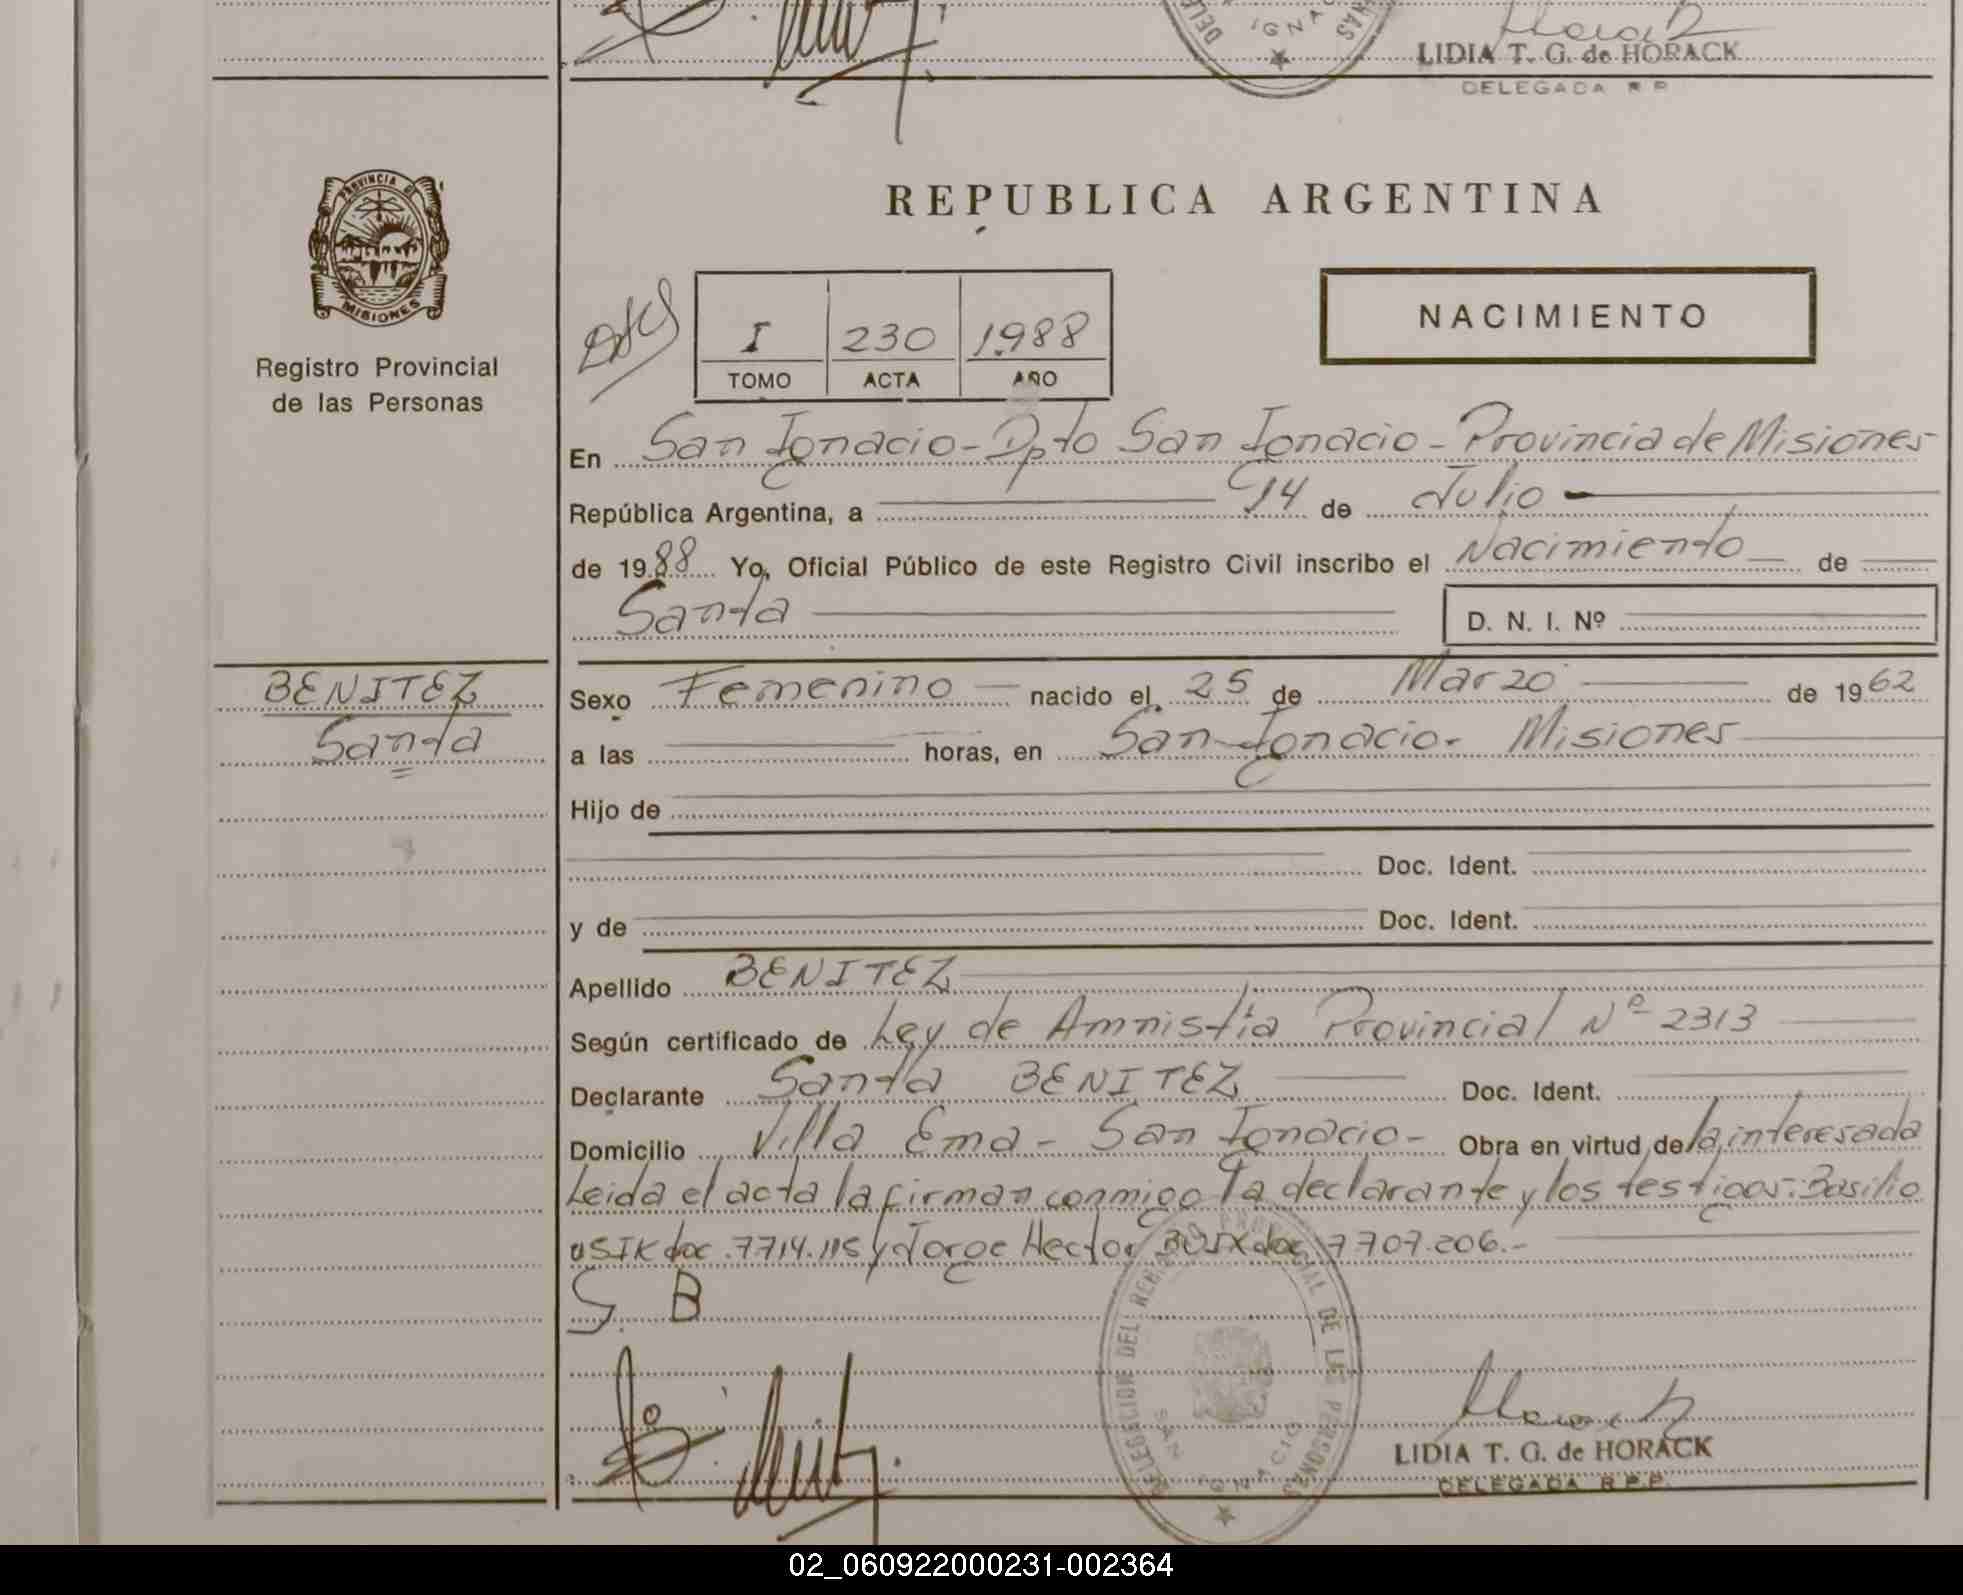 DELE IGNAC NAS
LIDIA T. G. de HORACK
DELEGADA R P
PROVINCIA DE
MISIONES
Registro Provincial
de las Personas
REPUBLICA ARGENTINA
I 230 1988
TOMO ACTA AÑO
NACIMIENTO
En San Ignacio - Dpto San Ignacio - Provincia de Misiones
República Argentina, a 14 de Julio
de 1988 Yo, Oficial Público de este Registro Civil inscribo el Nacimiento de
Santa D. N. I. Nº
BENITEZ
Santa
Sexo Femenino nacido el 25 de Marzo de 1962
a las horas, en San Ignacio. Misiones
Hijo de
Doc. Ident.
y de Doc. Ident.
Apellido BENITEZ
Según certificado de Ley de Amnistía Provincial Nº 2313
Declarante Santa BENITEZ Doc. Ident.
Domicilio Villa Ema - San Ignacio - Obra en virtud de la interesada
Leida el acta la firman conmigo la declarante y los testigos: Basilio
USIK doc. 7714.115 y Jorge Hector doc 7707.206.-
S. B
DELEGACION DEL REGISTRO PROVINCIAL DE LAS PERSONAS
SAN IGNACIO
LIDIA T. G. de HORACK
DELEGADA R.P.P.
02_060922000231-002364